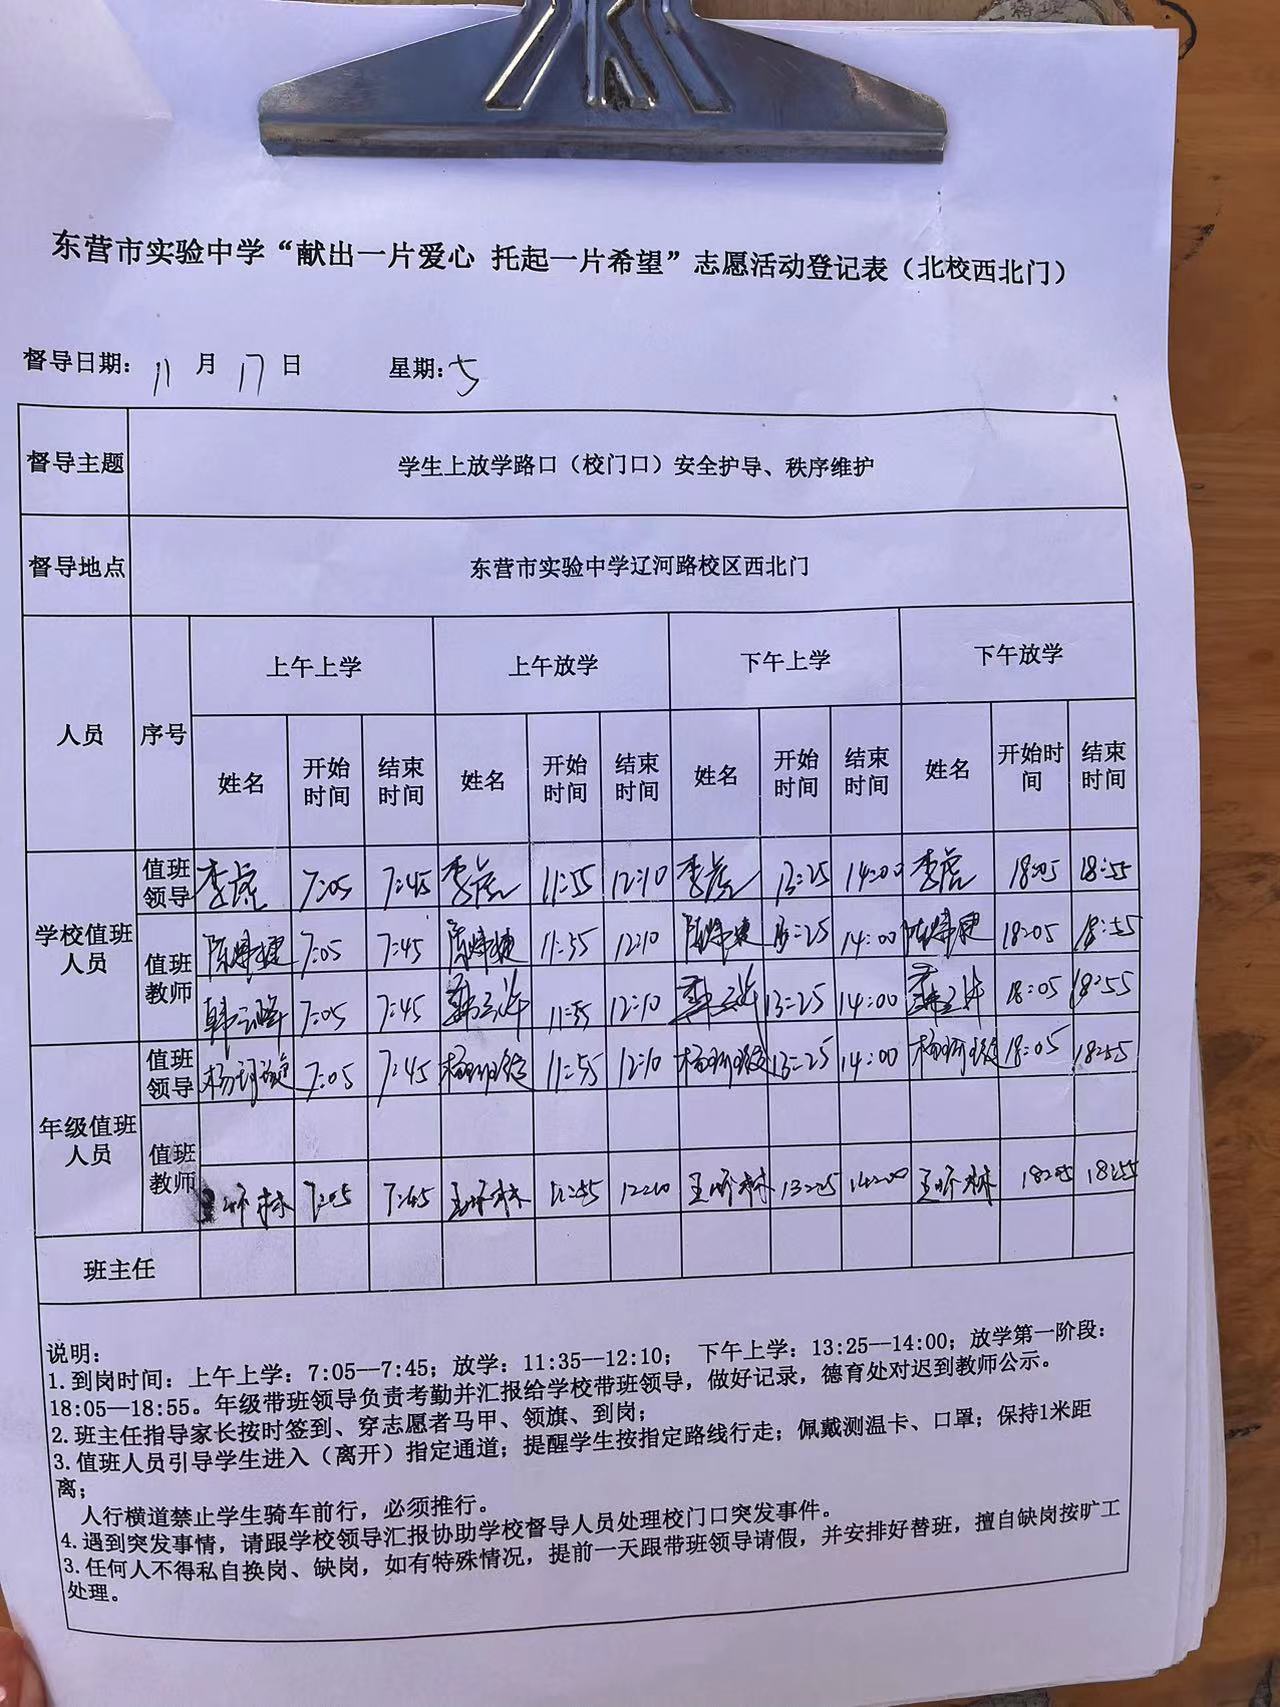 东营市实验中学“献出一片爱心 托起一片希望”志愿活动登记表（北校西北门）
督导日期： 11 月 17 日 星期：五
督导主题 学生上放学路口（校门口）安全护导、秩序维护
督导地点 东营市实验中学辽河路校区西北门
人员 序号 上午上学 上午放学 下午上学 下午放学
姓名 开始时间 结束时间 姓名 开始时间 结束时间 姓名 开始时间 结束时间 姓名 开始时间 结束时间
学校值班人员 值班领导 李虎 7:05 7:45 李虎 11:55 12:10 李虎 13:25 14:00 李虎 18:05 18:55
值班教师 7:05 7:45 11:35 12:10 13:25 14:00 18:05 18:55
7:05 7:45 11:35 12:10 13:25 14:00 18:05 18:55
年级值班人员 值班领导 7:05 7:45 11:55 12:10 13:25 14:00 18:05 18:55
值班教师 7:05 7:45 11:55 12:10 13:25 14:00 18:05 18:55
班主任
说明：
1.到岗时间：上午上学：7:05--7:45；放学：11:35--12:10； 下午上学：13:25--14:00；放学第一阶段：
18:05--18:55。年级带班领导负责考勤并汇报给学校带班领导，做好记录，德育处对迟到教师公示。
2.班主任指导家长按时签到、穿志愿者马甲、领旗、到岗；
3.值班人员引导学生进入（离开）指定通道；提醒学生按指定路线行走；佩戴测温卡、口罩；保持1米距
离；
人行横道禁止学生骑车前行，必须推行。
4.遇到突发事情，请跟学校领导汇报协助学校督导人员处理校门口突发事件。
3.任何人不得私自换岗、缺岗，如有特殊情况，提前一天跟带班领导请假，并安排好替班，擅自缺岗按旷工
处理。